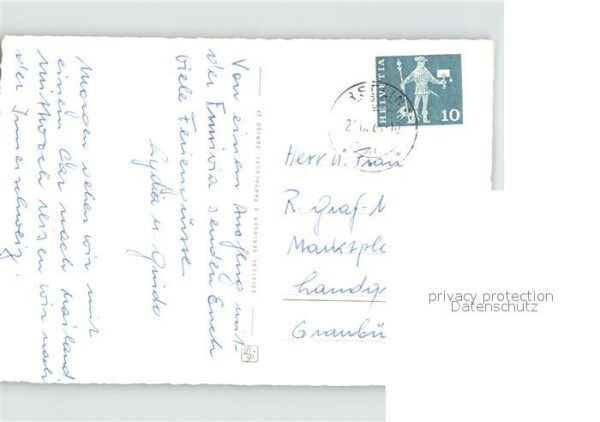 Von einem Ausflug mit
der Familie senden Euch
viele Feriengrüsse
Lydia u. Guido
Morgen sehen wir mit
einem Car nach Mailand
Mittwoch reisen wir nach
der Innerschweiz.
HELVETIA
10
Herr u. Frau
R. Graf-M
Marktpla
Landq
Graubü
privacy protection
Datenschutz